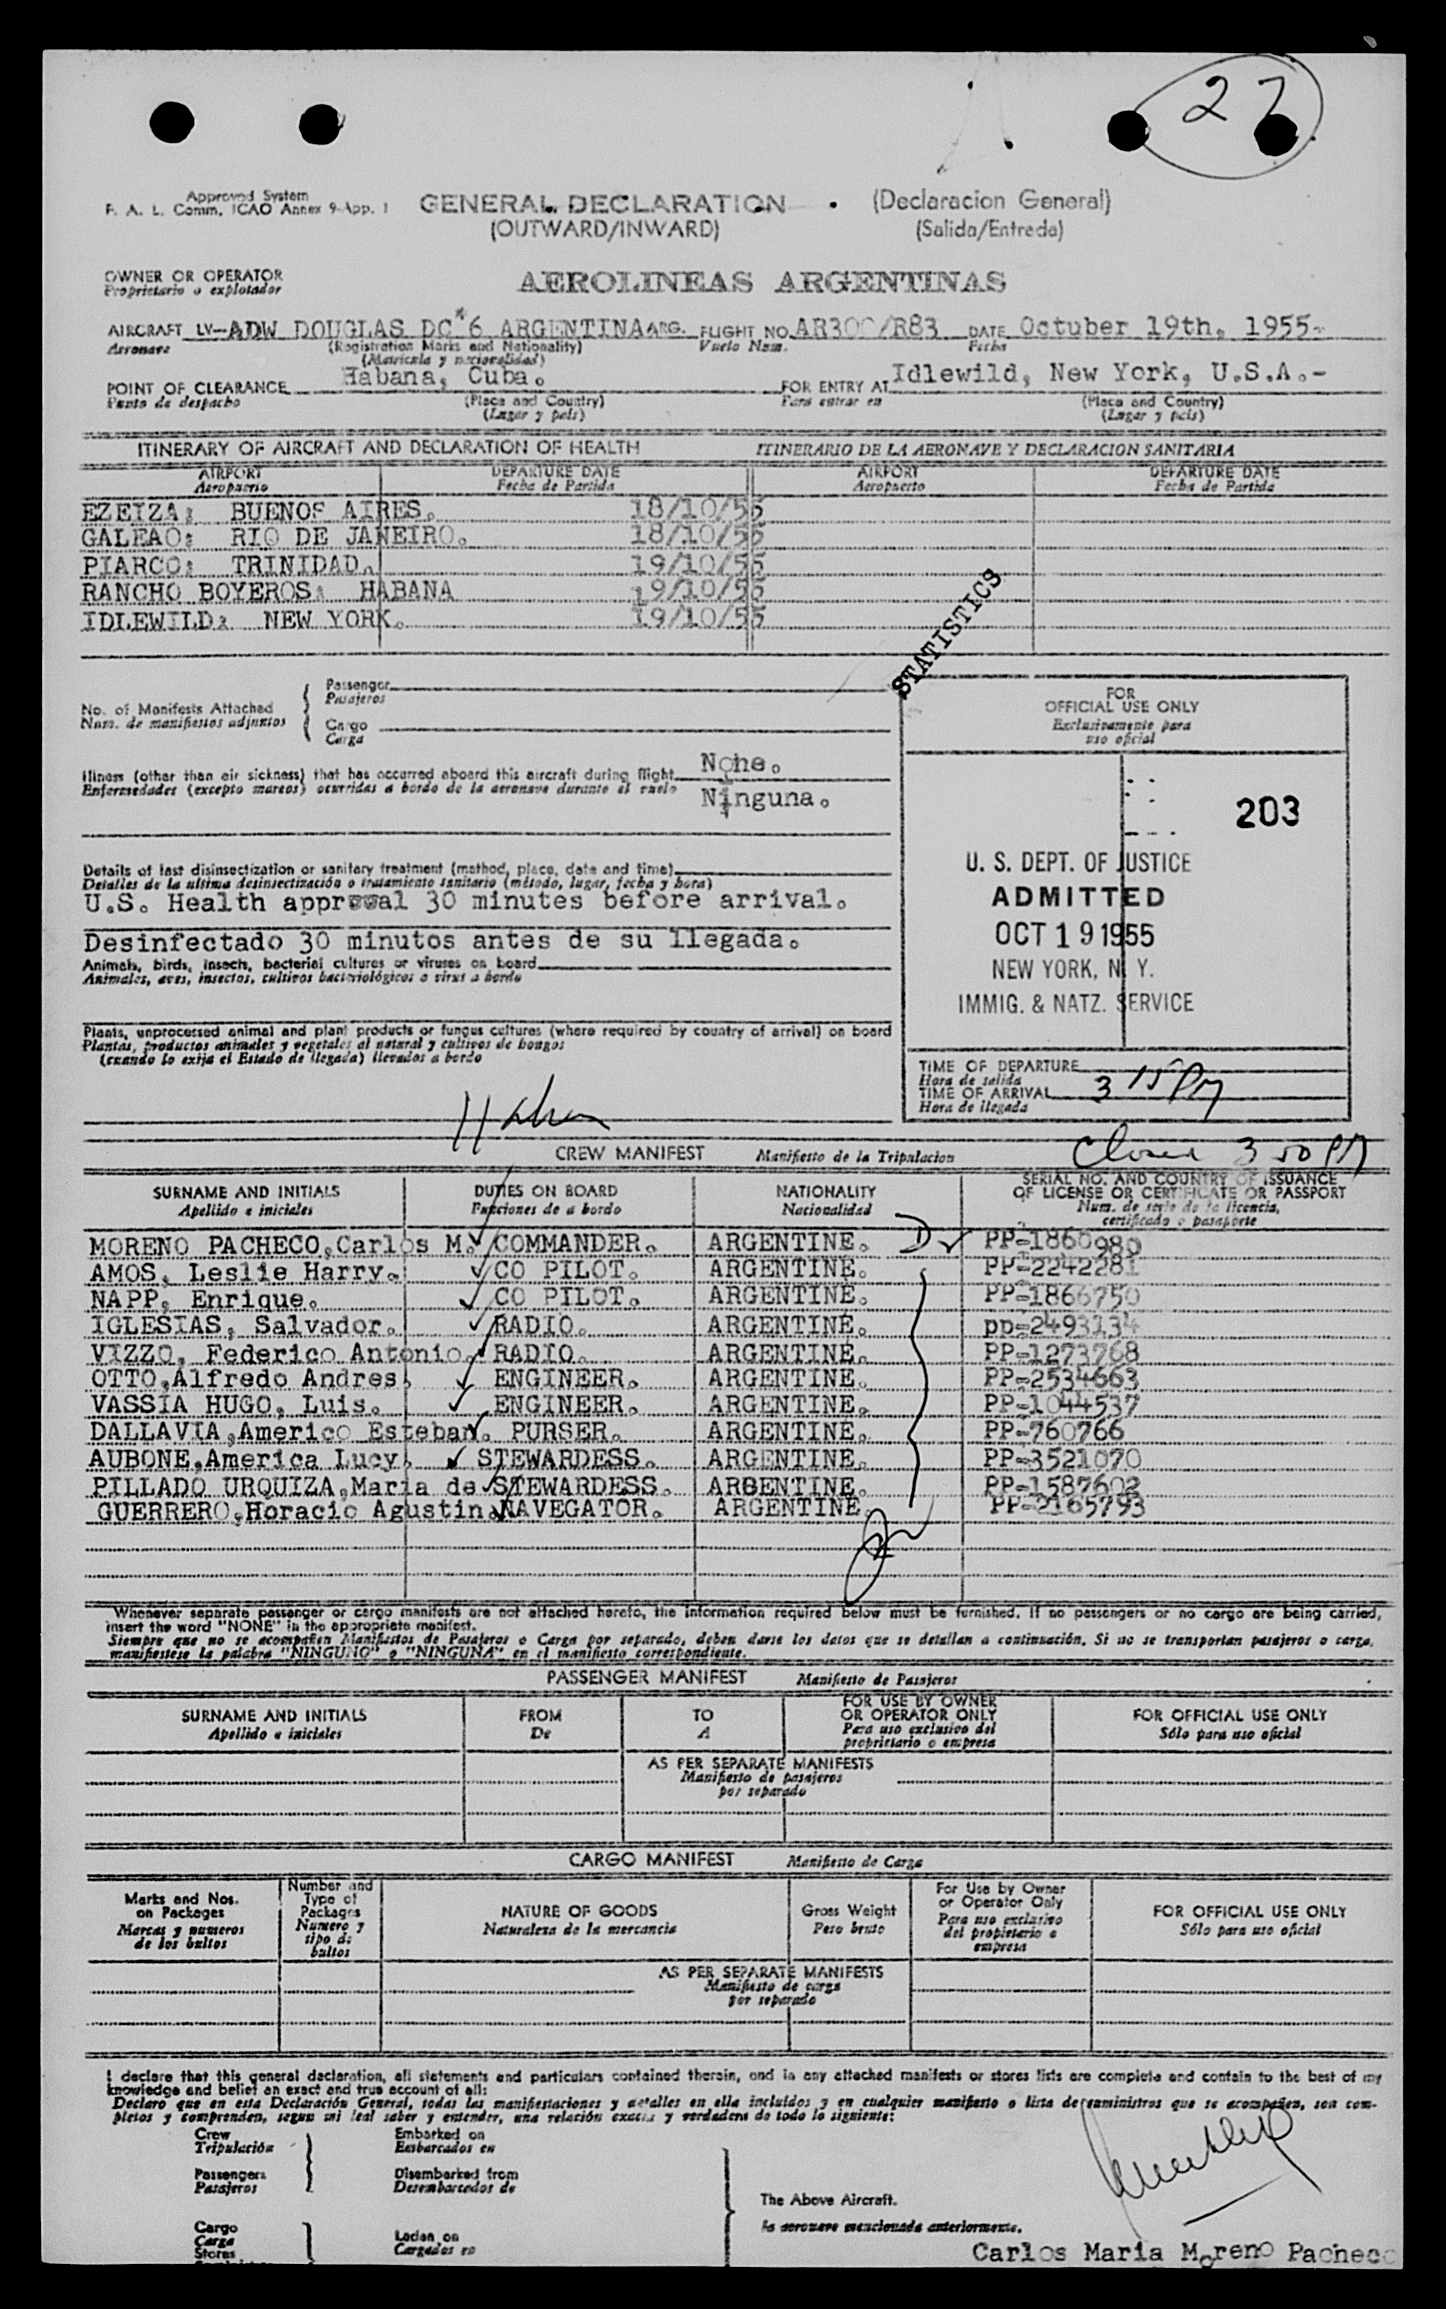 27
Approved System
F. A. L. Comm. ICAO Annex 9-App. 1
GENERAL DECLARATION (Declaracion General)
(OUTWARD/INWARD) (Salida/Entreda)
OWNER OR OPERATOR
Proprietario o explotador
AEROLINEAS ARGENTINAS
AIRCRAFT LV-ADW DOUGLAS DC*6 ARGENTINA ARG. FLIGHT NO. AR300/R83 DATE Octuber 19th, 1955-
Aeronave (Registration Marks and Nationality) Vuelo Num. Fecha
(Matricula y nacionalidad)
POINT OF CLEARANCE Habana, Cuba. FOR ENTRY AT Idlewild, New York, U.S.A.-
Punto de despacho (Place and Country) Para entrar en (Place and Country)
(Lugar y pais) (Lugar y pais)
ITINERARY OF AIRCRAFT AND DECLARATION OF HEALTH ITINERARIO DE LA AERONAVE Y DECLARACION SANITARIA
AIRPORT DEPARTURE DATE AIRPORT DEPARTURE DATE
Aeropuerto Fecha de Partida Aeropuerto Fecha de Partida
EZEIZA: BUENOS AIRES. 18/10/55
GALEAO: RIO DE JANEIRO. 18/10/55
PIARCO: TRINIDAD. 19/10/55
RANCHO BOYEROS: HABANA 19/10/55
IDLEWILD: NEW YORK. 19/10/55
STATISTICS
No. of Manifests Attached
Num. de manifiestos adjuntos
Passenger
Pasajeros
Cargo
Carga
FOR
OFFICIAL USE ONLY
Exclusivamente para
uso oficial
Illness (other than air sickness) that has occurred aboard this aircraft during flight None.
Enfermedades (excepto mareos) ocurridas a bordo de la aeronave durante el vuelo Ninguna.
203
U. S. DEPT. OF JUSTICE
ADMITTED
OCT 19 1955
NEW YORK, N. Y.
IMMIG. & NATZ. SERVICE
Details of last disinsectization or sanitary treatment (method, place, date and time)
Detalles de la ultima desinsectización o tratamiento sanitario (método, lugar, fecha y hora)
U.S. Health approval 30 minutes before arrival.
Desinfectado 30 minutos antes de su llegada.
Animals, birds, insects, bacterial cultures or viruses on board
Animales, aves, insectos, cultivos bacteriológicos o virus a bordo
Plants, unprocessed animal and plant products or fungus cultures (where required by country of arrival) on board
Plantas, productos animales y vegetales al natural y cultivos de hongos
(cuando lo exija el Estado de llegada) llevados a bordo
TIME OF DEPARTURE
Hora de salida
TIME OF ARRIVAL 3 15 PM
Hora de llegada
3 50 PM
CREW MANIFEST Manifiesto de la Tripulacion
SURNAME AND INITIALS DUTIES ON BOARD NATIONALITY SERIAL NO. AND COUNTRY OF ISSUANCE
OF LICENSE OR CERTIFICATE OR PASSPORT
Apellido e iniciales Funciones de a bordo Nacionalidad Num. de serie de la licencia,
certificado o pasaporte
MORENO PACHECO,Carlos M. COMMANDER. ARGENTINE. D PP-1860980
AMOS, Leslie Harry. CO PILOT. ARGENTINE. PP-2242281
NAPP, Enrique. CO PILOT. ARGENTINE. PP-1866750
IGLESIAS, Salvador. RADIO. ARGENTINE. pp-2493134
VIZZO, Federico Antonio. RADIO. ARGENTINE. PP-1273768
OTTO,Alfredo Andres. ENGINEER. ARGENTINE. PP-2534663
VASSIA HUGO, Luis. ENGINEER. ARGENTINE. PP-1044537
DALLAVIA,Americo Esteban. PURSER. ARGENTINE. PP-760766
AUBONE,America Lucy. STEWARDESS. ARGENTINE. PP-3521070
PILLADO URQUIZA,Maria de STEWARDESS. ARGENTINE. PP-1587602
GUERRERO,Horacio Agustin.NAVEGATOR. ARGENTINE. PP-2165793
Whenever separate passenger or cargo manifests are not attached hereto, the information required below must be furnished. If no passengers or no cargo are being carried,
insert the word "NONE" in the appropriate manifest.
Siempre que no se acompañen Manifiestos de Pasajeros o Carga por separado, deben darse los datos que se detallan a continuación. Si no se transportan pasajeros o carga,
manifiestese la palabra "NINGUNO" o "NINGUNA" en el manifiesto correspondiente.
PASSENGER MANIFEST Manifiesto de Pasajeros
SURNAME AND INITIALS FROM TO FOR USE BY OWNER OR OPERATOR ONLY FOR OFFICIAL USE ONLY
Apellido e iniciales De A Para uso exclusivo del proprietario o empresa Sólo para uso oficial
AS PER SEPARATE MANIFESTS
Manifiesto de pasajeros
por separado
CARGO MANIFEST Manifiesto de Carga
Marks and Nos. on Packages Number and Type of Packages NATURE OF GOODS Gross Weight For Use by Owner or Operator Only FOR OFFICIAL USE ONLY
Marcas y numeros de los bultos Numero y tipo de bultos Naturaleza de la mercancia Peso bruto Para uso exclusivo del propietario o empresa Sólo para uso oficial
AS PER SEPARATE MANIFESTS
Manifiesto de carga
por separado
I declare that this general declaration, all statements and particulars contained therein, and in any attached manifests or stores lists are complete and contain to the best of my
knowledge and belief an exact and true account of all:
Declaro que en esta Declaración General, todas las manifiestaciones y detalles en ella incluidos y en cualquier manifiesto o lista de suministros que se acompañen, son com-
pletos y comprenden, segun mi leal saber y entender, una relación exacta y verdadera de todo lo siguiente:
Crew Embarked on
Tripulación Embarcados en
Passengers Disembarked from
Pasajeros Desembarcados de
The Above Aircraft.
la aeronave mencionada anteriormente.
Cargo Laden on
Carga Cargados en
Stores
Carlos Maria Moreno Pacheco